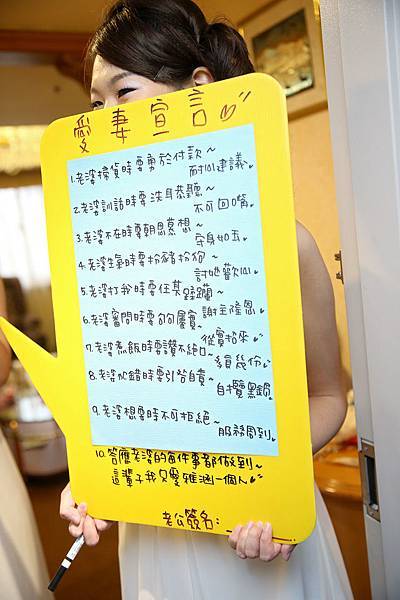 愛妻宣言
1.老婆掃貨時要勇於付款~
耐心建議
2.老婆訓話時要洗耳恭聽~
不可回嘴
3.老婆不在時要朝思慕想~
守身如玉
4.老婆生氣時要扮豬扮狗~
討她歡心
5.老婆打我時要任其蹂躪~
謝主隆恩
6.老婆審問時要句句屬實~
從實招來
7.老婆煮飯時要讚不絕口~
多負幾份
8.老婆做錯時要引咎自責~
自攬黑鍋
9.老婆想要時不可拒絕~
服務周到
10.答應老婆的每件事都做到~
這輩子我只愛雅涵一個人
老公簽名: